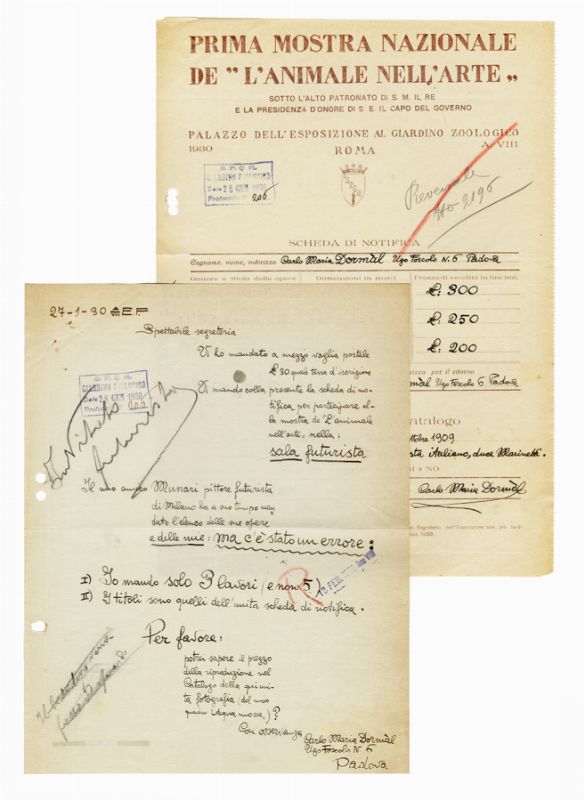 PRIMA MOSTRA NAZIONALE
DE "L'ANIMALE NELL'ARTE„
SOTTO L'ALTO PATRONATO DI S. M. IL RE
E LA PRESIDENZA D'ONORE DI S. E. IL CAPO DEL GOVERNO
PALAZZO DELL'ESPOSIZIONE AL GIARDINO ZOOLOGICO
1930 ROMA A. VIII
S.P.Q.R.
GIARDINO ZOOLOGICO
Data 28 GEN 1930
Protocollo N. 202
SCHEDA DI NOTIFICA
Cognome, nome, indirizzo Carlo Maria Dormàl Ugo Foscolo N. 6 Padova
Genere e titolo delle opere Dimensioni in metri Prezzo di vendita in lire ital.
£. 300
£. 250
£. 200
rizzo per il ritorno
màl Ugo Foscolo 6 Padova
atalogo
ttobre 1909
sta italiano, duce Marinetti.
SI o NO
Carlo Maria Dormàl
27-1-30 A.E.F.
Spettabile segreteria
Vi ho mandato a mezzo vaglia postale
£ 30 quale tassa d'iscrizione
Vi mando colla presente la scheda di no-
tifica per partecipare al-
la mostra de "L'animale
nell'arte", nella:
sala futurista
S.P.Q.R.
GIARDINO ZOOLOGICO
Data 28 GEN 1930
Protocollo 202
Invitato
futurista
Il mio amico Munari pittore futurista
di Milano ha a suo tempo man
dato l'elenco delle sue opere
e delle mie: ma c'è stato un errore:
I) Io mando solo 3 lavori (e non 5)
II) I titoli sono quelli dell'unita scheda di notifica.
R
13 FEB. Anno VIII
Per favore:
potrei sapere il prezzo
della riproduzione nel
Catalogo della qui uni-
ta fotografia (del mio
quadro Acqua mossa)?
Con osservanza
Carlo Maria Dormàl
Ugo Foscolo N. 6
Padova